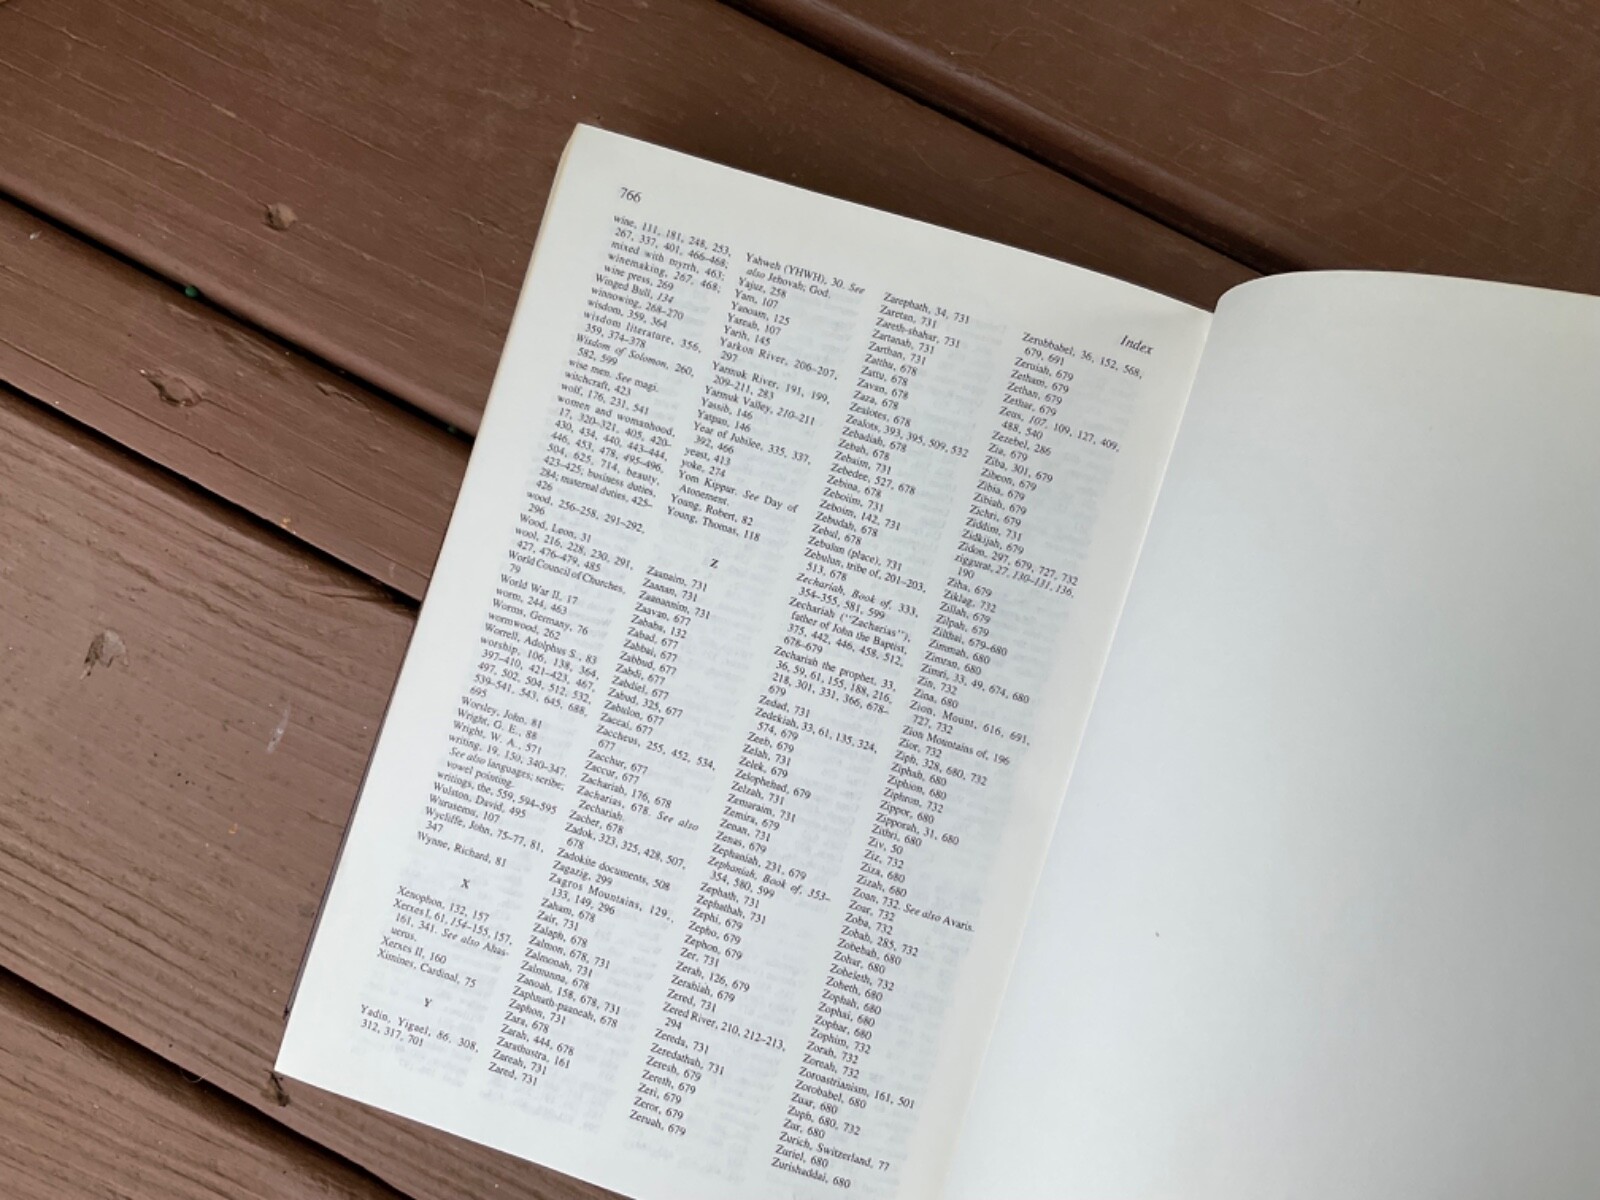 766
Index
wine, 111, 181, 248, 253,
267, 337, 401, 466–468;
mixed with myrrh, 463;
winemaking, 267, 468;
wine press, 269
Winged Bull, 134
winnowing, 268–270
wisdom, 359, 364
wisdom literature, 356,
359, 374–378
Wisdom of Solomon, 260,
582, 599
wise men. See magi.
witchcraft, 423
wolf, 176, 231, 541
women and womanhood,
17, 320–321, 405, 420–
430, 434, 440, 443–444,
446, 453, 478, 495–496,
504, 625, 714, beauty,
423–425; business duties,
284; maternal duties, 425–
426
wood, 256–258, 291–292,
296
Wood, Leon, 31
wool, 216, 228, 230, 291,
427, 476–479, 485
World Council of Churches,
79
World War II, 17
worm, 244, 463
Worms, Germany, 76
wormwood, 262
Worrell, Adolphus S., 83
worship, 106, 138, 364,
397–410, 421–423, 467,
497, 502, 504, 512, 532,
539–541, 543, 645, 688,
695
Worsley, John, 81
Wright, G. E., 88
Wright, W. A., 571
writing, 19, 150, 340–347.
See also languages; scribe;
vowel pointing.
writings, the, 559, 594–595
Wulston, David, 495
Wurusemu, 107
Wycliffe, John, 75–77, 81,
347
Wynne, Richard, 81
X
Xenophon, 132, 157
Xerxes I, 61, 154–155, 157,
161, 341. See also Ahas-
uerus.
Xerxes II, 160
Ximines, Cardinal, 75
Y
Yadin, Yigael, 86, 308,
312, 317, 701
Yahweh (YHWH), 30. See
also Jehovah; God.
Yajuz, 258
Yam, 107
Yanoam, 125
Yareah, 107
Yarih, 145
Yarkon River, 206–207,
297
Yarmuk River, 191, 199,
209–211, 283
Yarmuk Valley, 210–211
Yassib, 146
Yatpan, 146
Year of Jubilee, 335, 337,
392, 466
yeast, 413
yoke, 274
Yom Kippur. See Day of
Atonement.
Young, Robert, 82
Young, Thomas, 118
Z
Zaanaim, 731
Zaanan, 731
Zaanannim, 731
Zaavan, 677
Zababa, 132
Zabad, 677
Zabbai, 677
Zabbud, 677
Zabdi, 677
Zabdiel, 677
Zabud, 325, 677
Zabulon, 677
Zaccai, 677
Zaccheus, 255, 452, 534,
677
Zacchur, 677
Zaccur, 677
Zachariah, 176, 678
Zacharias, 678. See also
Zechariah.
Zacher, 678
Zadok, 323, 325, 428, 507,
678
Zadokite documents, 508
Zagazig, 299
Zagros Mountains, 129,
133, 149, 296
Zaham, 678
Zair, 731
Zalaph, 678
Zalmon, 678, 731
Zalmonah, 731
Zalmunna, 678
Zanoah, 158, 678, 731
Zaphnath-paaneah, 678
Zaphon, 731
Zara, 678
Zarah, 444, 678
Zarathustra, 161
Zareah, 731
Zared, 731
Zarephath, 34, 731
Zaretan, 731
Zareth-shahar, 731
Zartanah, 731
Zarthan, 731
Zatthu, 678
Zattu, 678
Zavan, 678
Zaza, 678
Zealotes, 678
Zealots, 393, 395, 509, 532
Zebadiah, 678
Zebah, 678
Zebaim, 731
Zebedee, 527, 678
Zebina, 678
Zeboiim, 731
Zeboim, 142, 731
Zebudah, 678
Zebul, 678
Zebulun (place), 731
Zebulun, tribe of, 201–203,
513, 678
Zechariah, Book of, 333,
354–355, 581, 599
Zechariah ("Zacharias"),
father of John the Baptist,
375, 442, 446, 458, 512,
678–679
Zechariah the prophet, 33,
36, 59, 61, 155, 188, 216,
218, 301, 331, 366, 678–
679
Zedad, 731
Zedekiah, 33, 61, 135, 324,
574, 679
Zeeb, 679
Zelah, 731
Zelek, 679
Zelophehad, 679
Zelzah, 731
Zemaraim, 731
Zemira, 679
Zenan, 731
Zenas, 679
Zephaniah, 231, 679
Zephaniah, Book of, 353–
354, 580, 599
Zephath, 731
Zephathah, 731
Zephi, 679
Zepho, 679
Zephon, 679
Zer, 731
Zerah, 126, 679
Zerahiah, 679
Zered, 731
Zered River, 210, 212–213,
294
Zereda, 731
Zeredathah, 731
Zeresh, 679
Zereth, 679
Zeri, 679
Zeror, 679
Zeruah, 679
Zerubbabel, 36, 152, 568,
679, 691
Zeruiah, 679
Zetham, 679
Zethan, 679
Zethar, 679
Zeus, 107, 109, 127, 409,
488, 540
Zezebel, 286
Zia, 679
Ziba, 301, 679
Zibeon, 679
Zibia, 679
Zibiah, 679
Zichri, 679
Ziddim, 731
Zidkijah, 679
Zidon, 297, 679, 727, 732
ziggurat, 27, 130–131, 136,
190
Ziha, 679
Ziklag, 732
Zillah, 679
Zilpah, 679
Zilthai, 679–680
Zimmah, 680
Zimran, 680
Zimri, 33, 49, 674, 680
Zin, 732
Zina, 680
Zion, Mount, 616, 691,
727, 732
Zion Mountains of, 196
Zior, 732
Ziph, 328, 680, 732
Ziphah, 680
Ziphion, 680
Ziphron, 732
Zippor, 680
Zipporah, 31, 680
Zithri, 680
Ziv, 50
Ziz, 732
Ziza, 680
Zizah, 680
Zoan, 732. See also Avaris.
Zoar, 732
Zoba, 732
Zobah, 285, 732
Zobebah, 680
Zohar, 680
Zoheleth, 732
Zoheth, 680
Zophah, 680
Zophai, 680
Zophar, 680
Zophim, 732
Zorah, 732
Zoreah, 732
Zoroastrianism, 161, 501
Zorobabel, 680
Zuar, 680
Zuph, 680, 732
Zur, 680
Zurich, Switzerland, 77
Zuriel, 680
Zurishaddai, 680